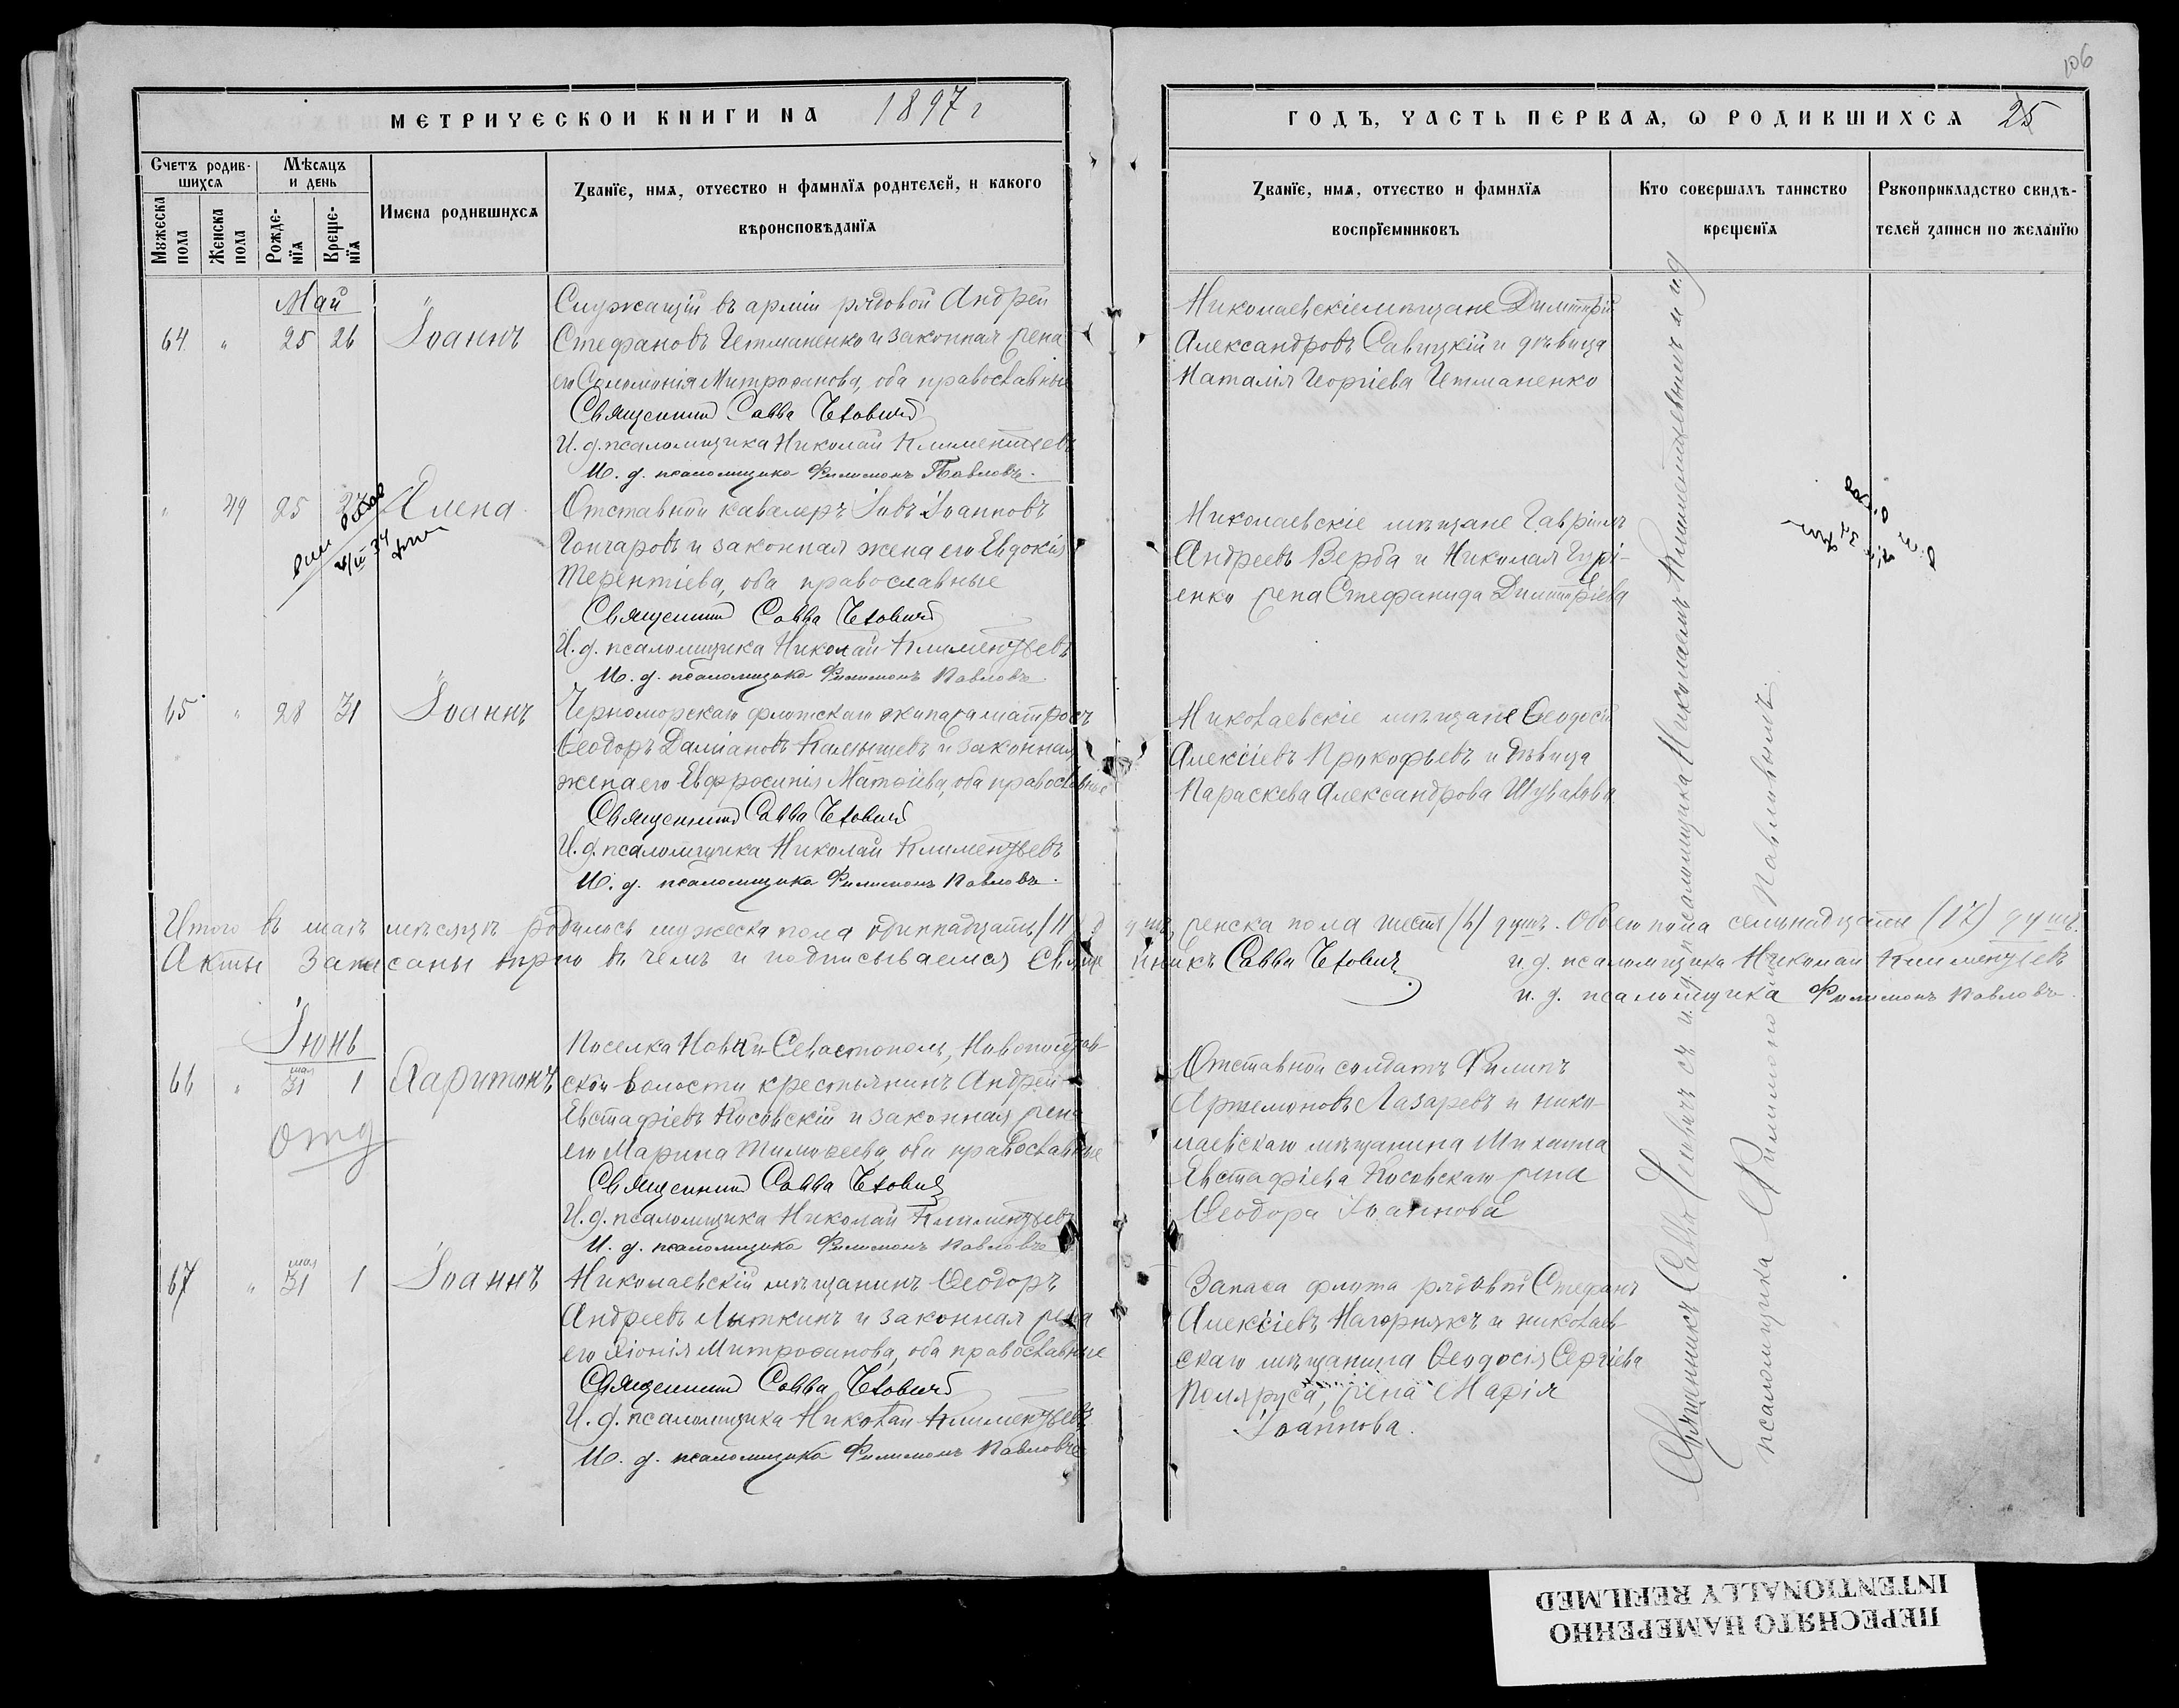 106
МЕТРИЧЕСКОЙ КНИГИ НА 1897 г
Счетъ родившихся
Мѣсяцъ и день
Мужеска пола
Женска пола
Рожденїя
Крещенїя
Имена родившихся
Званїе, имя, отчество и фамилїя родителей, и какого
вѣроисповѣданїя
Май
64 " 25 26 Іоаннъ
Служащій въ арміи рядовой Андрей
Стефановъ Гетманенко и законная жена
его Соломонія Митрофанова, оба православные
Священникъ Савва
И. д. псаломщика Николай Климентьевъ
И. д. псаломщика Филимонъ Павловъ.
" 49 25 27 Елена
Отставной кавалеръ Іовъ Іоанновъ
Гончаровъ и законная жена его Евдокія
Терентіева, оба православные
Священникъ Савва
И. д. псаломщика Николай Климентьевъ
И. д. псаломщика Филимонъ Павловъ.
65 " 28 31 Іоаннъ
Черноморскаго флотскаго экипажа матросъ
Ѳеодоръ Даміановъ и законная
жена его Евфросинія Матѳіева, оба православные
Священникъ Савва
И. д. псаломщика Николай Климентьевъ
И. д. псаломщика Филимонъ Павловъ.
Итого въ маѣ мѣсяцѣ родилось мужеска пола одиннадцать (11) д
Акты записаны вѣрно въ чемъ и подписываемся Свяще
Іюнь
66 " мая 31 1 Харитонъ
отд
Поселка Новый-Севастополь, Новополтав-
ской волости крестьянинъ Андрей
Евстафіевъ Косовскій и законная жена
его Марина Тимоѳеева, оба православные
Священникъ Савва
И. д. псаломщика Николай Климентьевъ
И. д. псаломщика Филимонъ Павловъ
67 " мая 31 1 Іоаннъ
Николаевскій мѣщанинъ Ѳеодоръ
Андреевъ Лыткинъ и законная жена
его Хіонія Митрофанова, оба православные
Священникъ Савва
И. д. псаломщика Николай Климентьевъ
И. д. псаломщика Филимонъ Павловъ
ГОДЪ, ЧАСТЬ ПЕРВАЯ, Ѡ РОДИВШИХСЯ 25
Званїе, имя, отчество и фамилїя
воспрїемниковъ
Кто совершалъ таинство
крещенїя
Рукоприкладство свидѣ-
телей записи по желанїю
Николаевскіе мѣщане Димитрій
Александровъ Савицкій и дѣвица
Наталія Георгіева Гетманенко
Николаевскіе мѣщане Гавріилъ
Андреевъ Верба и Николая Гурі-
енко жена Стефанида Димитріева
Николаевскіе мѣщане Ѳеодосій
Алексіевъ Прокофьевъ и дѣвица
Параскева Александрова Шувалова
душъ, женска пола шесть (6) душъ. Обоего пола семьнадцать (17) душъ.
нникъ Савва
и. д. псаломщика Николай Климентьевъ
и. д. псаломщика Филимонъ Павловъ.
Отставной солдатъ Филипъ
Артемоновъ Лазаревъ и нико-
лаевскаго мѣщанина Михаила
Евстафіева Косовскаго жена
Ѳеодора Іоаннова
Запаса флота рядовой Стефанъ
Алексіевъ Нагорнякъ и николаев-
скаго мѣщанина Ѳеодосія Сергіева
Поляруса, жена Марія
Іоаннова.
Священникъ Савва съ и. д. псаломщика Николаемъ Климентьевымъ и и. д
псаломщика Филимономъ Павловымъ
ПЕРЕСНЯТО НАМЕРЕННО
INTENTIONALLY REFILMED